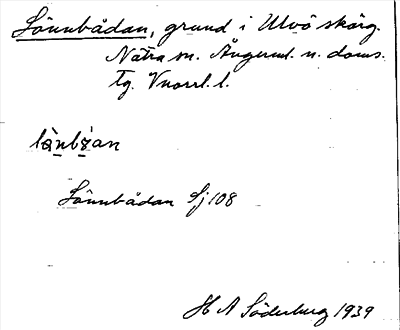 Lönnbådan, grund i Ulvö skärg.
Nätra sn. Ångerml. n. doms.
tg. Vnorrl. l.
Lönnbådan Sj 108
H A Söderberg 1939